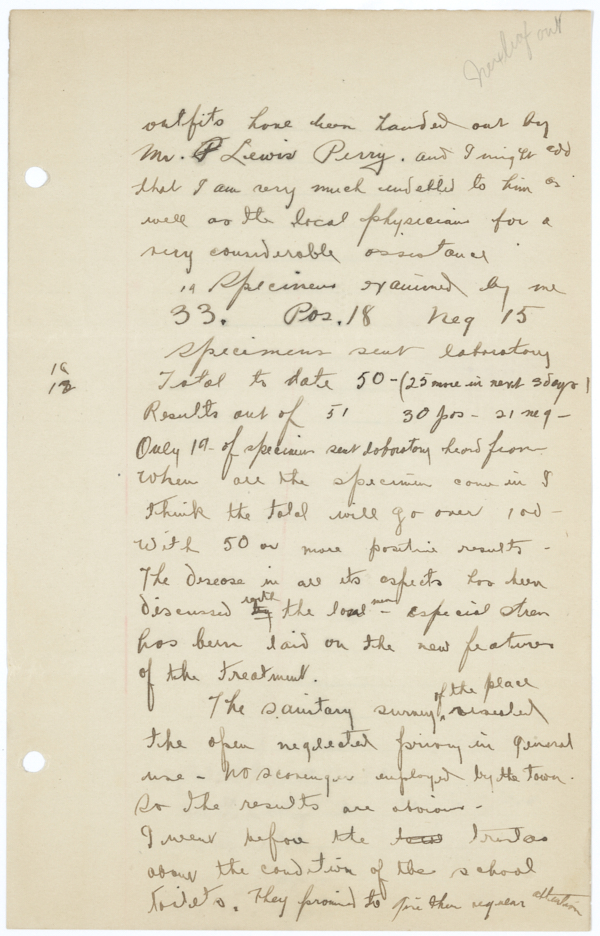 outfits have been handed out by
Mr. Lewis Perry. and I might add
that I am very much indebted to him as
well as the local physicians for a
very considerable assistance
19 Specimens examined by me
33. Pos. 18 Neg 15
Specimens sent laboratory
18
12
Total to date 50 - (25 more in next 3 days)
Results out of 51 30 pos - 21 neg -
Only 19 - of specimens sent laboratory heard from
When all the specimens come in I
think the total will go over 100 -
With 50 or more positive results -
The Disease in all its aspects has been
discussed with the local men - especial stress
has been laid on the new features
of the treatment.
The sanitary survey of the place revealed
the open neglected privy in general
use - No scavenger employed by the town.
So the results are obvious -
I went before the town trustees
about the condition of the school
toilets. They promised to give them regular attention